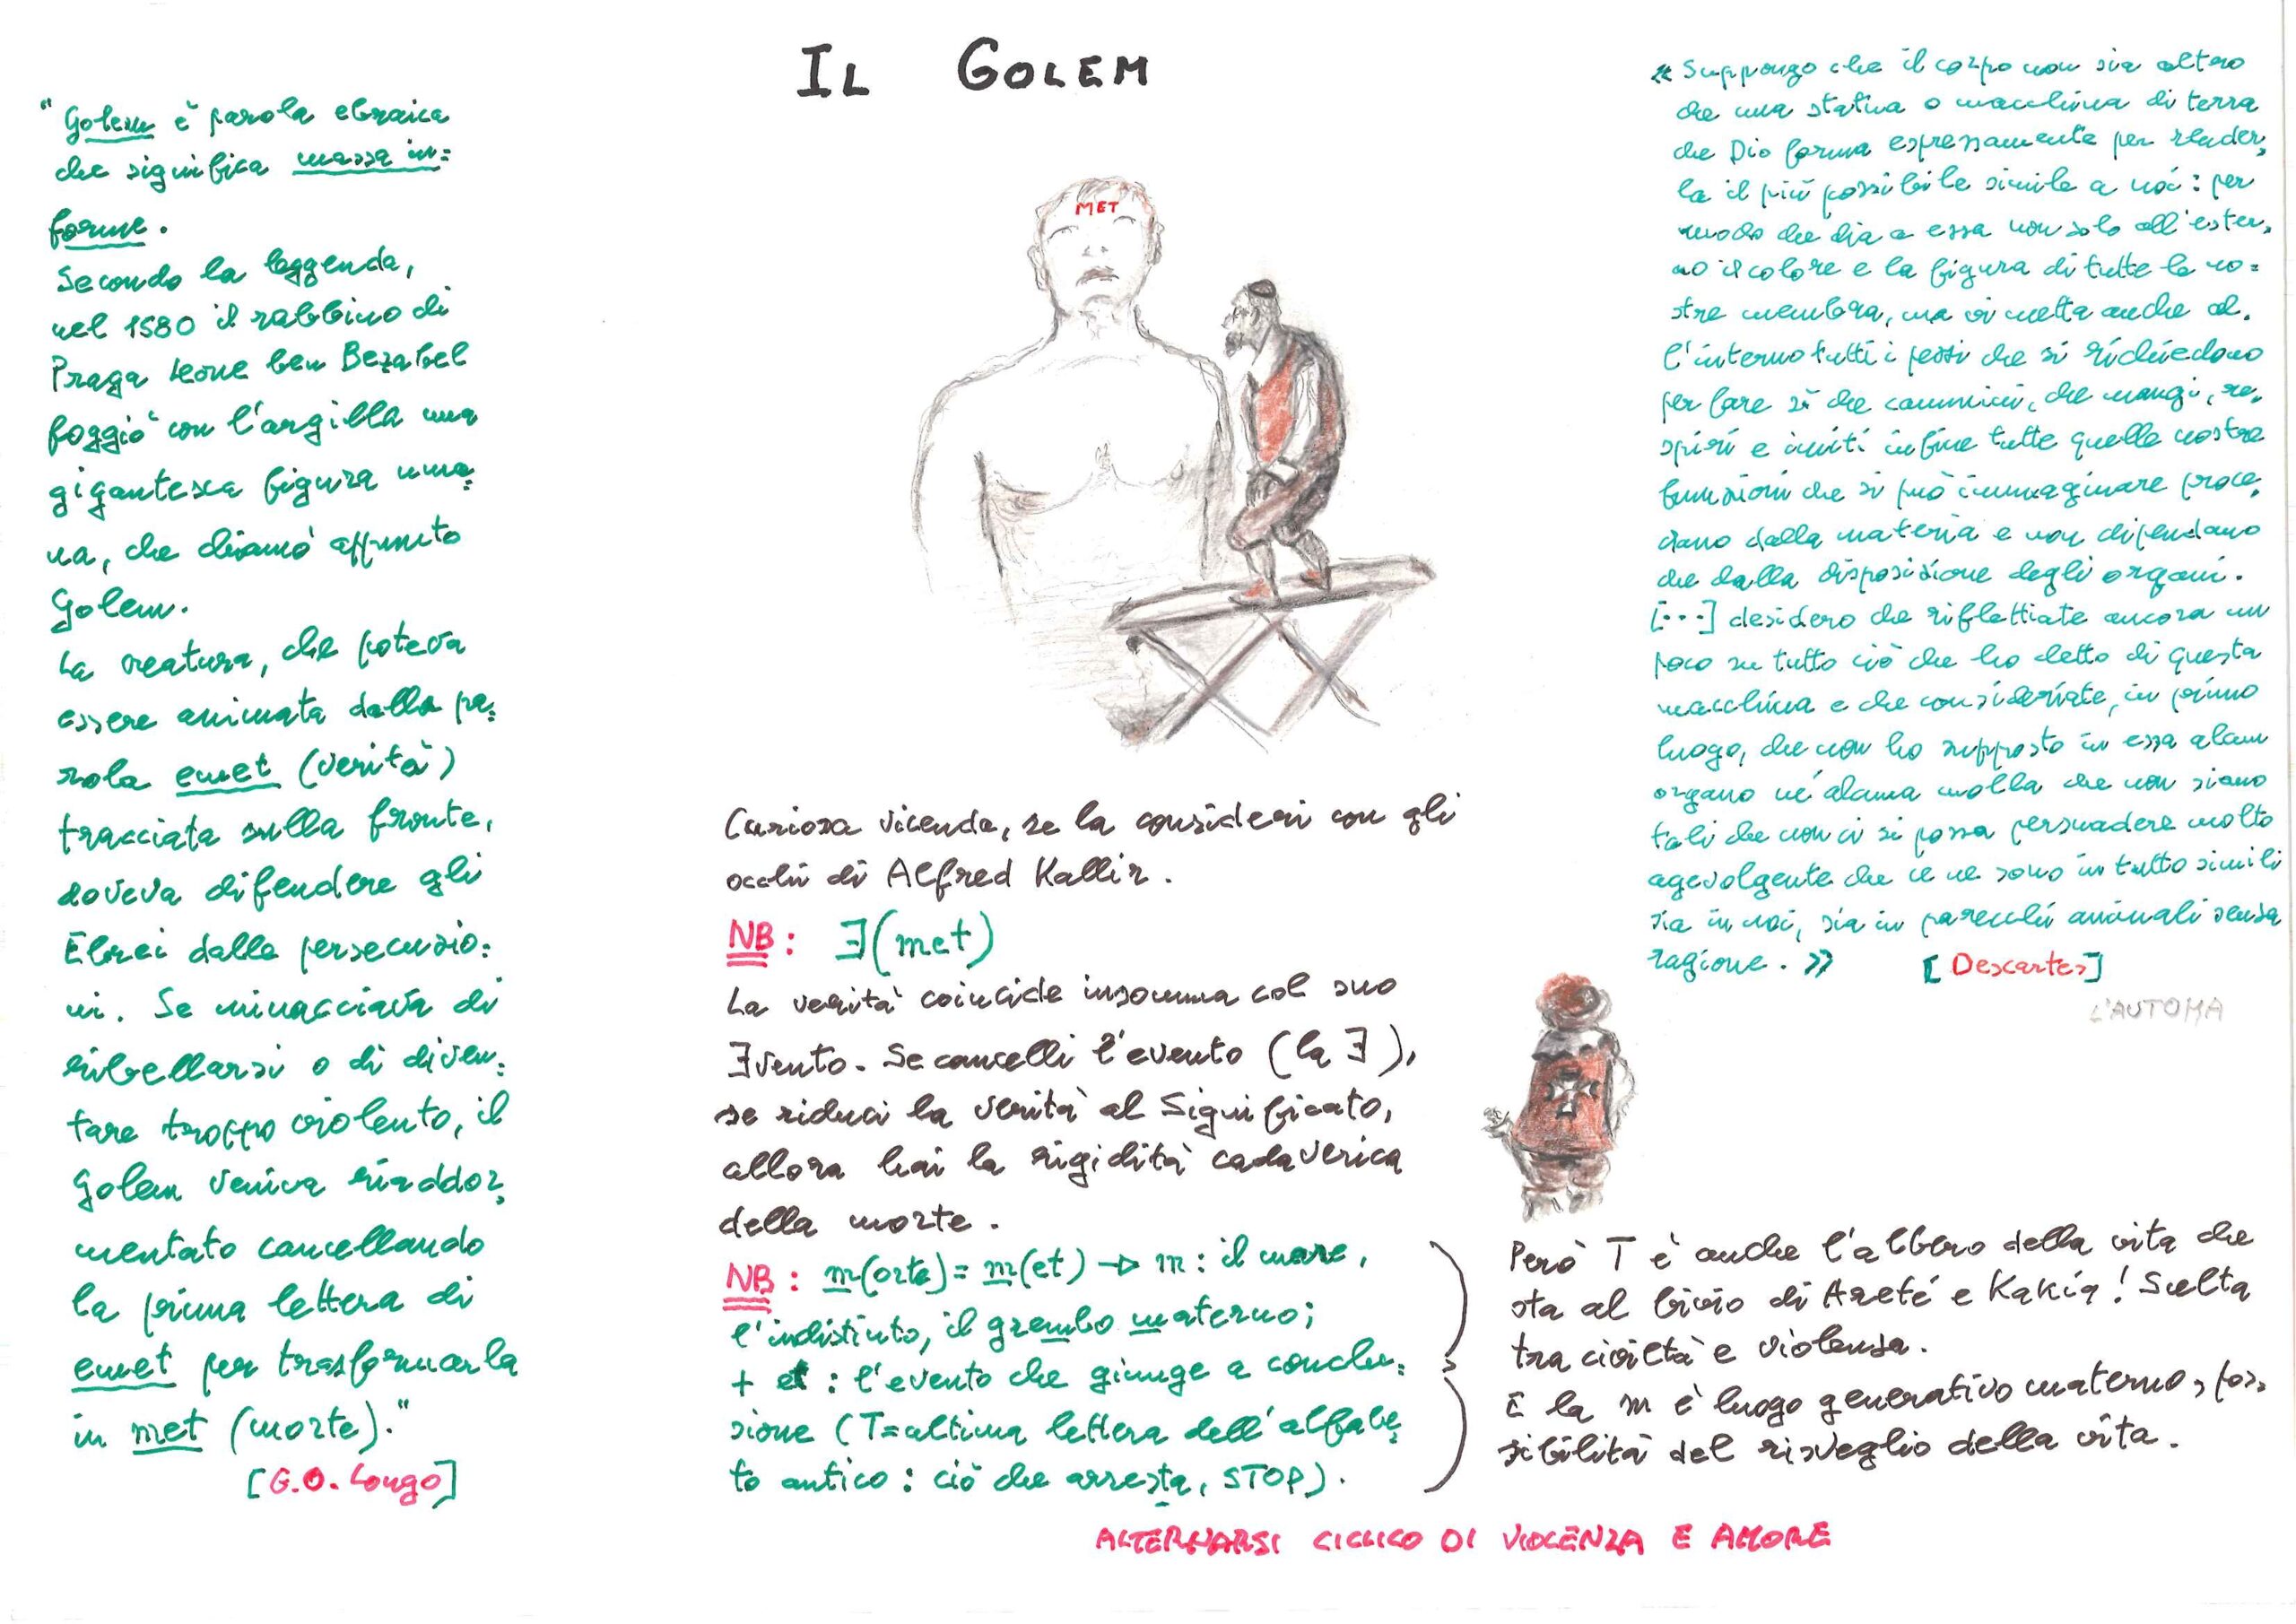 IL GOLEM
"Golem è parola ebraica
che significa massa in=
forme.
Secondo la leggenda,
nel 1580 il rabbino di
Praga Leone ben Bezabel
foggiò con l'argilla una
gigantesca figura uma=
na, che chiamò appunto
Golem.
La creatura, che poteva
essere animata dalla pa=
rola emet (verità)
tracciata sulla fronte,
doveva difendere gli
Ebrei dalle persecuzio=
ni. Se minacciava di
ribellarsi o di diven=
tare troppo violento, il
Golem veniva riaddor=
mentato cancellando
la prima lettera di
emet per trasformarla
in met (morte)."
[G.O. Longo]
MET
Curiosa vicenda, se la consideri con gli
occhi di Alfred Kallir.
NB: Ǝ(met)
La verità coincide insomma col suo
Ǝvento. Se cancelli l'evento (la Ǝ),
se riduci la verità al Significato,
allora hai la rigidità cadaverica
della morte.
NB: m(orte) = m(et) → m: il mare,
l'indistinto, il grembo materno;
+ et: l'evento che giunge a conclu=
sione (T=ultima lettera dell'alfabe=
to antico: ciò che arresta, STOP).
« Suppongo che il corpo non sia altro
che una statua o macchina di terra
che Dio forma espressamente per render=
la il più possibile simile a noi: per
modo che dia a essa non solo all'ester=
no il colore e la figura di tutte le no=
stre membra, ma vi metta anche al=
l'interno tutti i pezzi che si richiedono
per fare sì che cammini, che mangi, re=
spiri e imiti infine tutte quelle nostre
funzioni che si può immaginare proce=
dano dalla materia e non dipendano
che dalla disposizione degli organi.
[...] desidero che riflettiate ancora un
poco su tutto ciò che ho detto di questa
macchina e che consideriate, in primo
luogo, che non ho supposto in essa alcun
organo né alcuna molla che non siano
tali che non ci si possa persuadere molto
agevolgente che ce ne sono in tutto simili
sia in noi, sia in parecchi animali senza
ragione. » [Descartes]
L'AUTOMA
Però T è anche l'albero della vita che
sta al bivio di Areté e Kakía! Scelta
tra civiltà e violenza.
E la m è luogo generativo materno, pos=
sibilità del risveglio della vita.
ALTERNARSI CICLICO DI VIOLENZA E AMORE